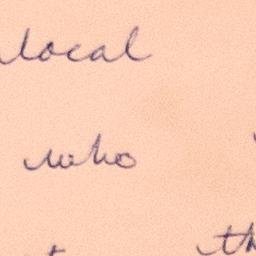 local
who
th